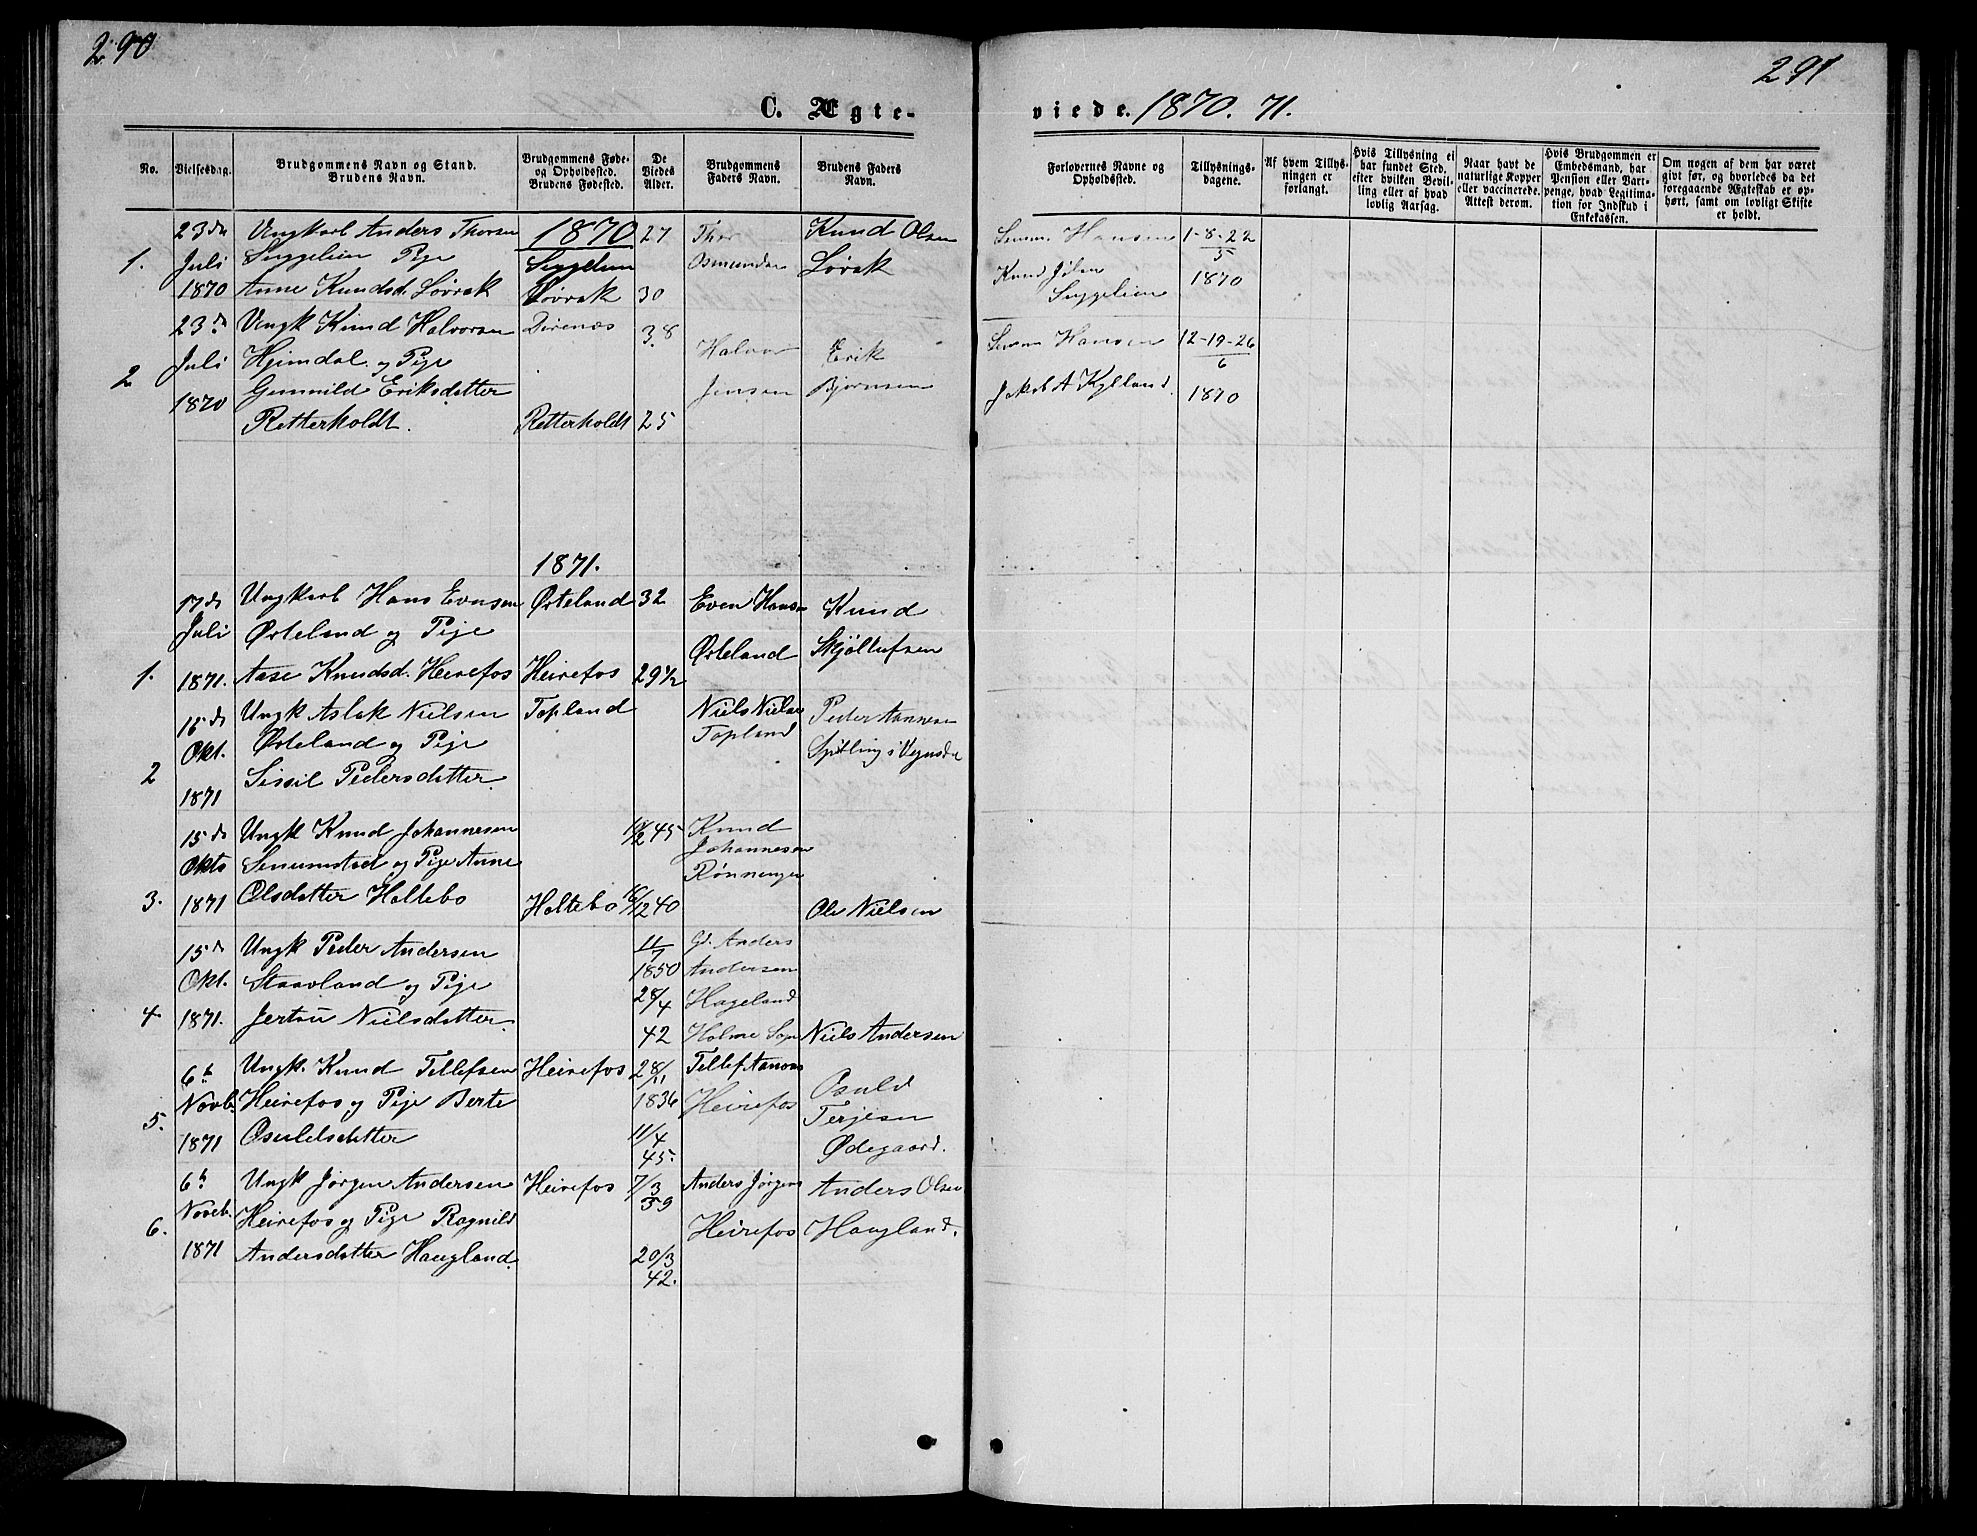 290
291
C. Ægte-
viede. 1870. 71.
No.
Vielsesdag.
Brudgommens Navn og Stand.
Brudens Navn.
Brudgommens Føde-
og Opholdssted.
Brudens Fødested.
De
Viedes
Alder.
Brudgommens
Faders Navn.
Brudens Faders
Navn.
Forlovernes Navne og
Opholdssted.
Tillysnings-
dagene.
Af hvem Tillys-
ningen er
forlangt.
Hvis Tillysning ei
har fundet Sted,
efter hvilken Bevil-
ling eller af hvad
lovlig Aarsag.
Naar havt de
naturlige Kopper
eller vaccinerede.
Attest derom.
Hvis Brudgommen er
Embedsmand, har
Pension eller Vart-
penge, hvad Legitima-
tion for Indskud i
Enkekassen.
Om nogen af dem har været
givt før, og hvorledes da det
foregaaende Ægteskab er op-
hørt, samt om lovligt Skifte
er holdt.
1870
1.
23de
Juli
1870
Ungkarl Anders Thorsen
Suggelien Pige
Anne Knudsd. Løvrak
Suggelien
Løvrak
27
30
Thor
Osmundsen
Knud Olsen
Løvrak
Hansen
Knud
Suggelien
1-8-22
5
1870
2
23de
Juli
1870
Ungk Knud Halvorsen
Heimdal og Pige
Gunnild Eriksdatter
Retterholdt.
Direnæs
Retterholdt
38
25
Halvor
Jensen
Erik
Bjørnsen
Hansen
Jakob A Kylland
12-19-26
6
1870
1871.
1.
17de
Juli
1871.
Ungkarl Hans Evensen
Ørteland og Pige
Aase Knudsd. Heirefos
Ørteland
Heirefos
32
29½
Even Hansen
Ørteland
Knud
Skjøllufsen
2
15de
Okt.
1871
Ungk Aslak Nielsen
Ørteland og Pige
Sissil Pedersdatter
Topland
Niels Nielsen
Topland
Peder Aannesen
Spilling i
3.
15de
Okto
1871
Ungk Knud Johannesen
Senumstad og Pige Anne
Olsdatter Holtebo
Holtebo
45
40
Knud
Johannesen
Rønningen
Ole Nielsen
4
15de
Okt.
1871.
Ungk Peder Andersen
Staavland og Pige
Jertru Nielsdatter
11/7
1850
28/4
42
Gl. Anders
Andersen
Hageland
Holme Sogn
Niels Andersen
5.
6te
Novb.
1871
Ungk. Knud Tellefsen
Heirefos og Pige Berte
Osuldsdatter
Heirefos
28/11
1836
11/4
45.
Tellef Aanons
Heirefos
Osuld
Terjesen
Ødegaard.
6.
6te
Noveb.
1871
Ungk Jørgen Andersen
Heirefos og Pige Ragnild
Andersdatter Haugland.
Heirefos
7/3
39
20/3
42.
Anders Jørgens
Heirefos
Anders Olsen
Haugland.